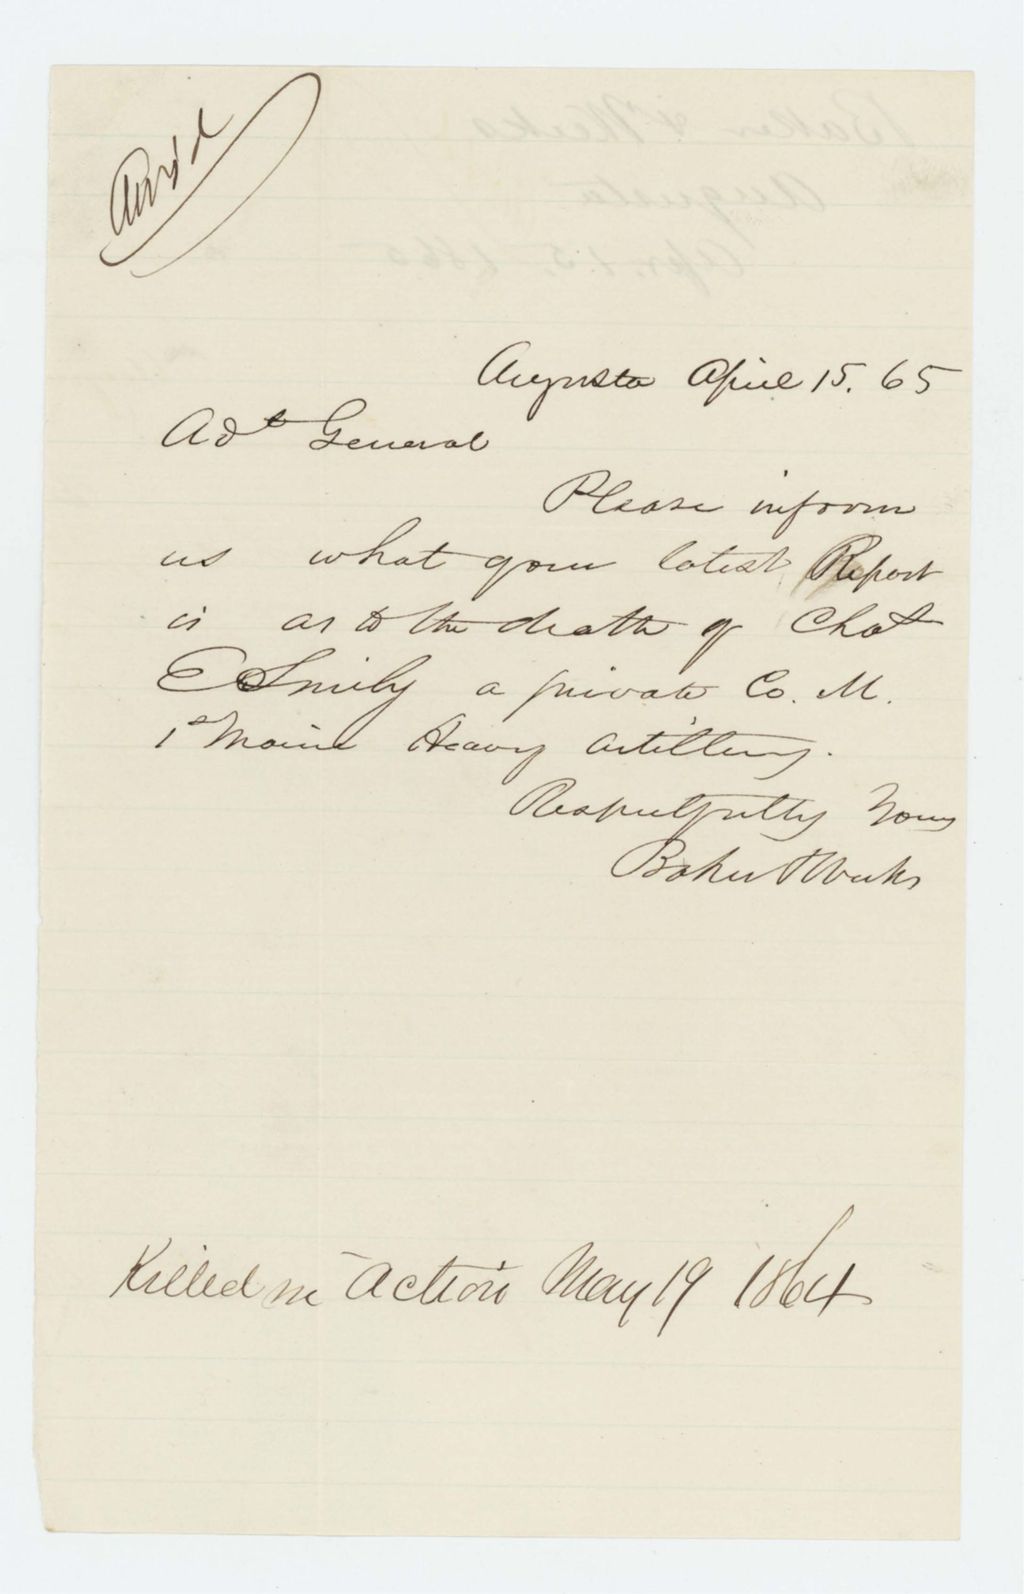 Ans'd
Augusta April 15. 65
Adt General
Please inform
us what your latest Report
is as to the death of Chas
E Smily a private Co. M.
1st Maine Heavy Artillery.
Respectfully Yours
Baker & Weeks
Killed in Action May 19 1864